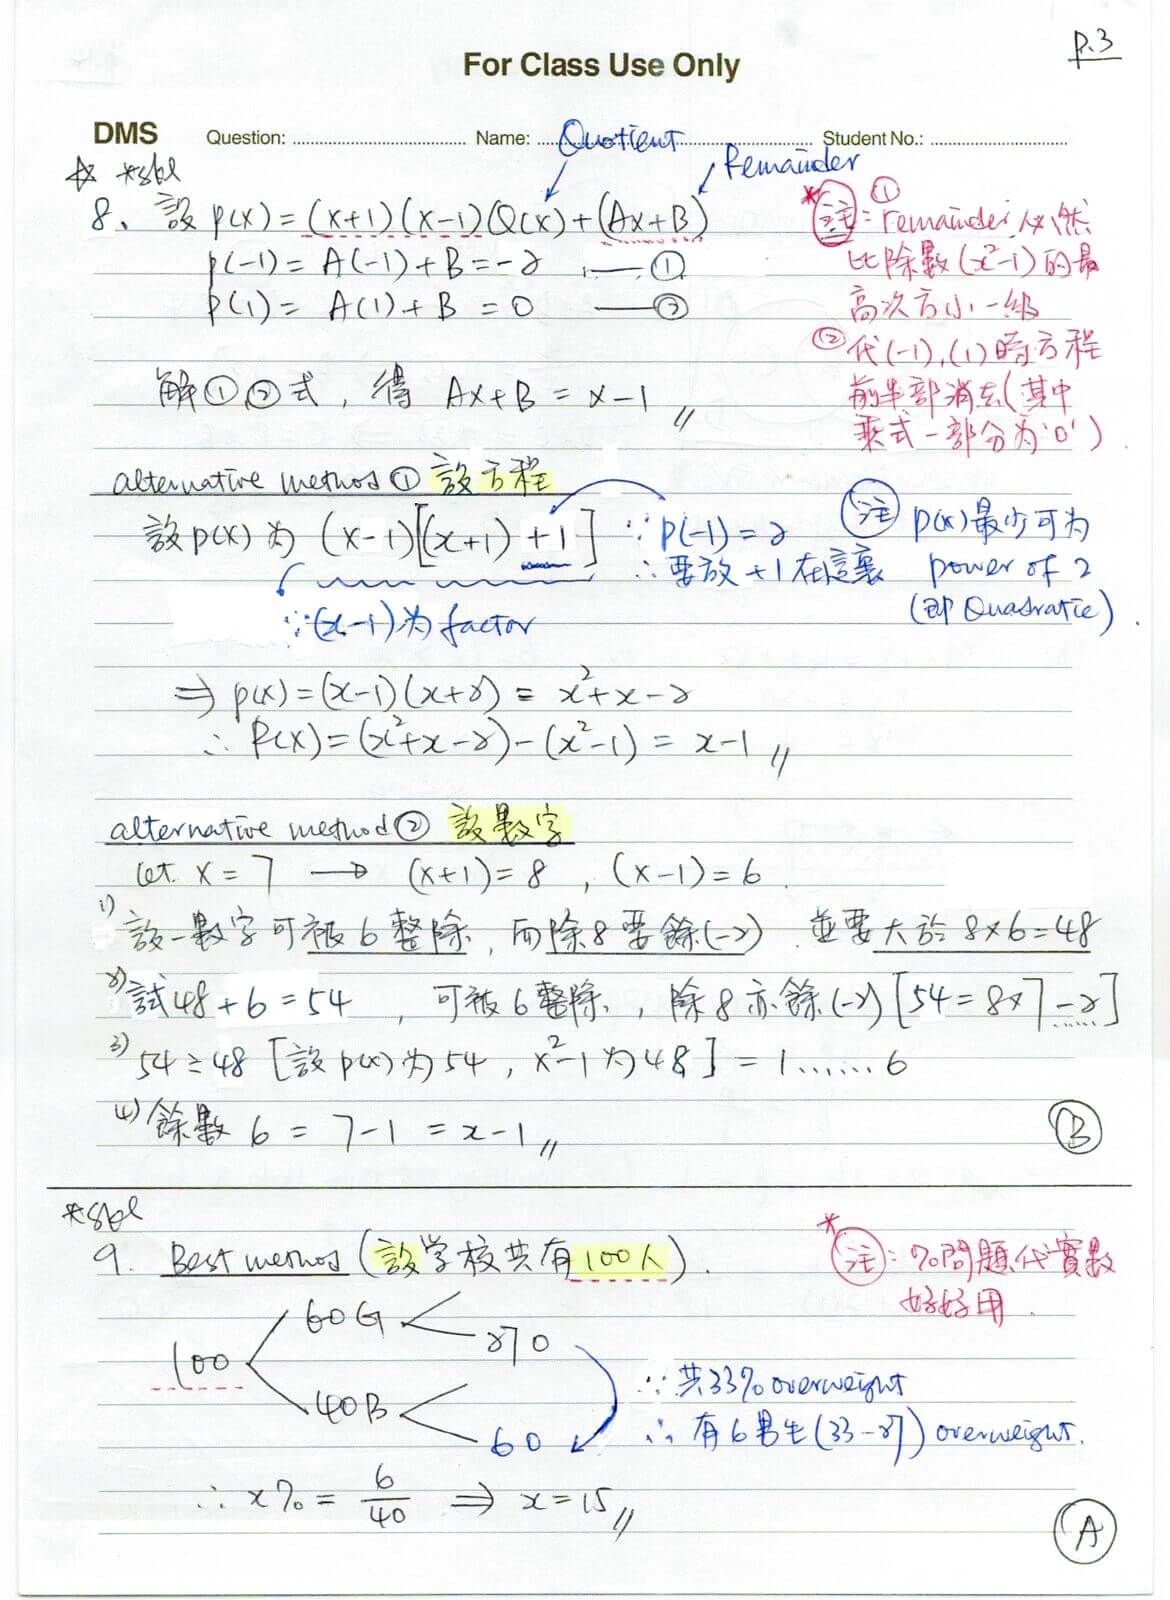 p.3
For Class Use Only
DMS Question: Name: Student No.:
Quotient
Remainder
☆ *skl
8、設 p(x) = (x+1)(x-1)Q(x) + (Ax+B)
p(-1) = A(-1)+B = -2 —— ①
p(1) = A(1)+B = 0 —— ②
解①②式，得 Ax+B = x-1 //
*註：① remainder 必然
比除數(x²-1)的最
高次方小一級
② 代(-1),(1)時方程
前半部消去(其中
乘式一部分為'0')
alternative method ① 設方程
設 p(x) 為 (x-1)[(x+1) +1]
∵ p(-1) = 2
∴ 要放 +1 在這裏
∵ (x-1)為 factor
註 p(x)最少可為
power of 2
(即 Quadratic).
⇒ p(x) = (x-1)(x+2) = x²+x-2
∴ R(x) = (x²+x-2) - (x²-1) = x-1 //
alternative method ② 設數字
let x = 7 → (x+1)=8 , (x-1)=6.
1) 設一數字可被6整除, 而除8要餘(-2). 並要大於 8×6=48
2) 試48+6=54 , 可被6整除, 除8亦餘(-2) [54=8×7-2]
3) 54÷48 [設 p(x) 為 54, x²-1 為 48] = 1……6
4) 餘數 6 = 7-1 = x-1 //
B
*skl
9. Best method (設學校共有100人).
*註：%問題代實數
好好用.
100
60G
27 O
40B
6 O
∵ 共33% overweight
∴ 有6男生(33-27) overweight.
∴ x% = 6/40 ⇒ x=15 //
A